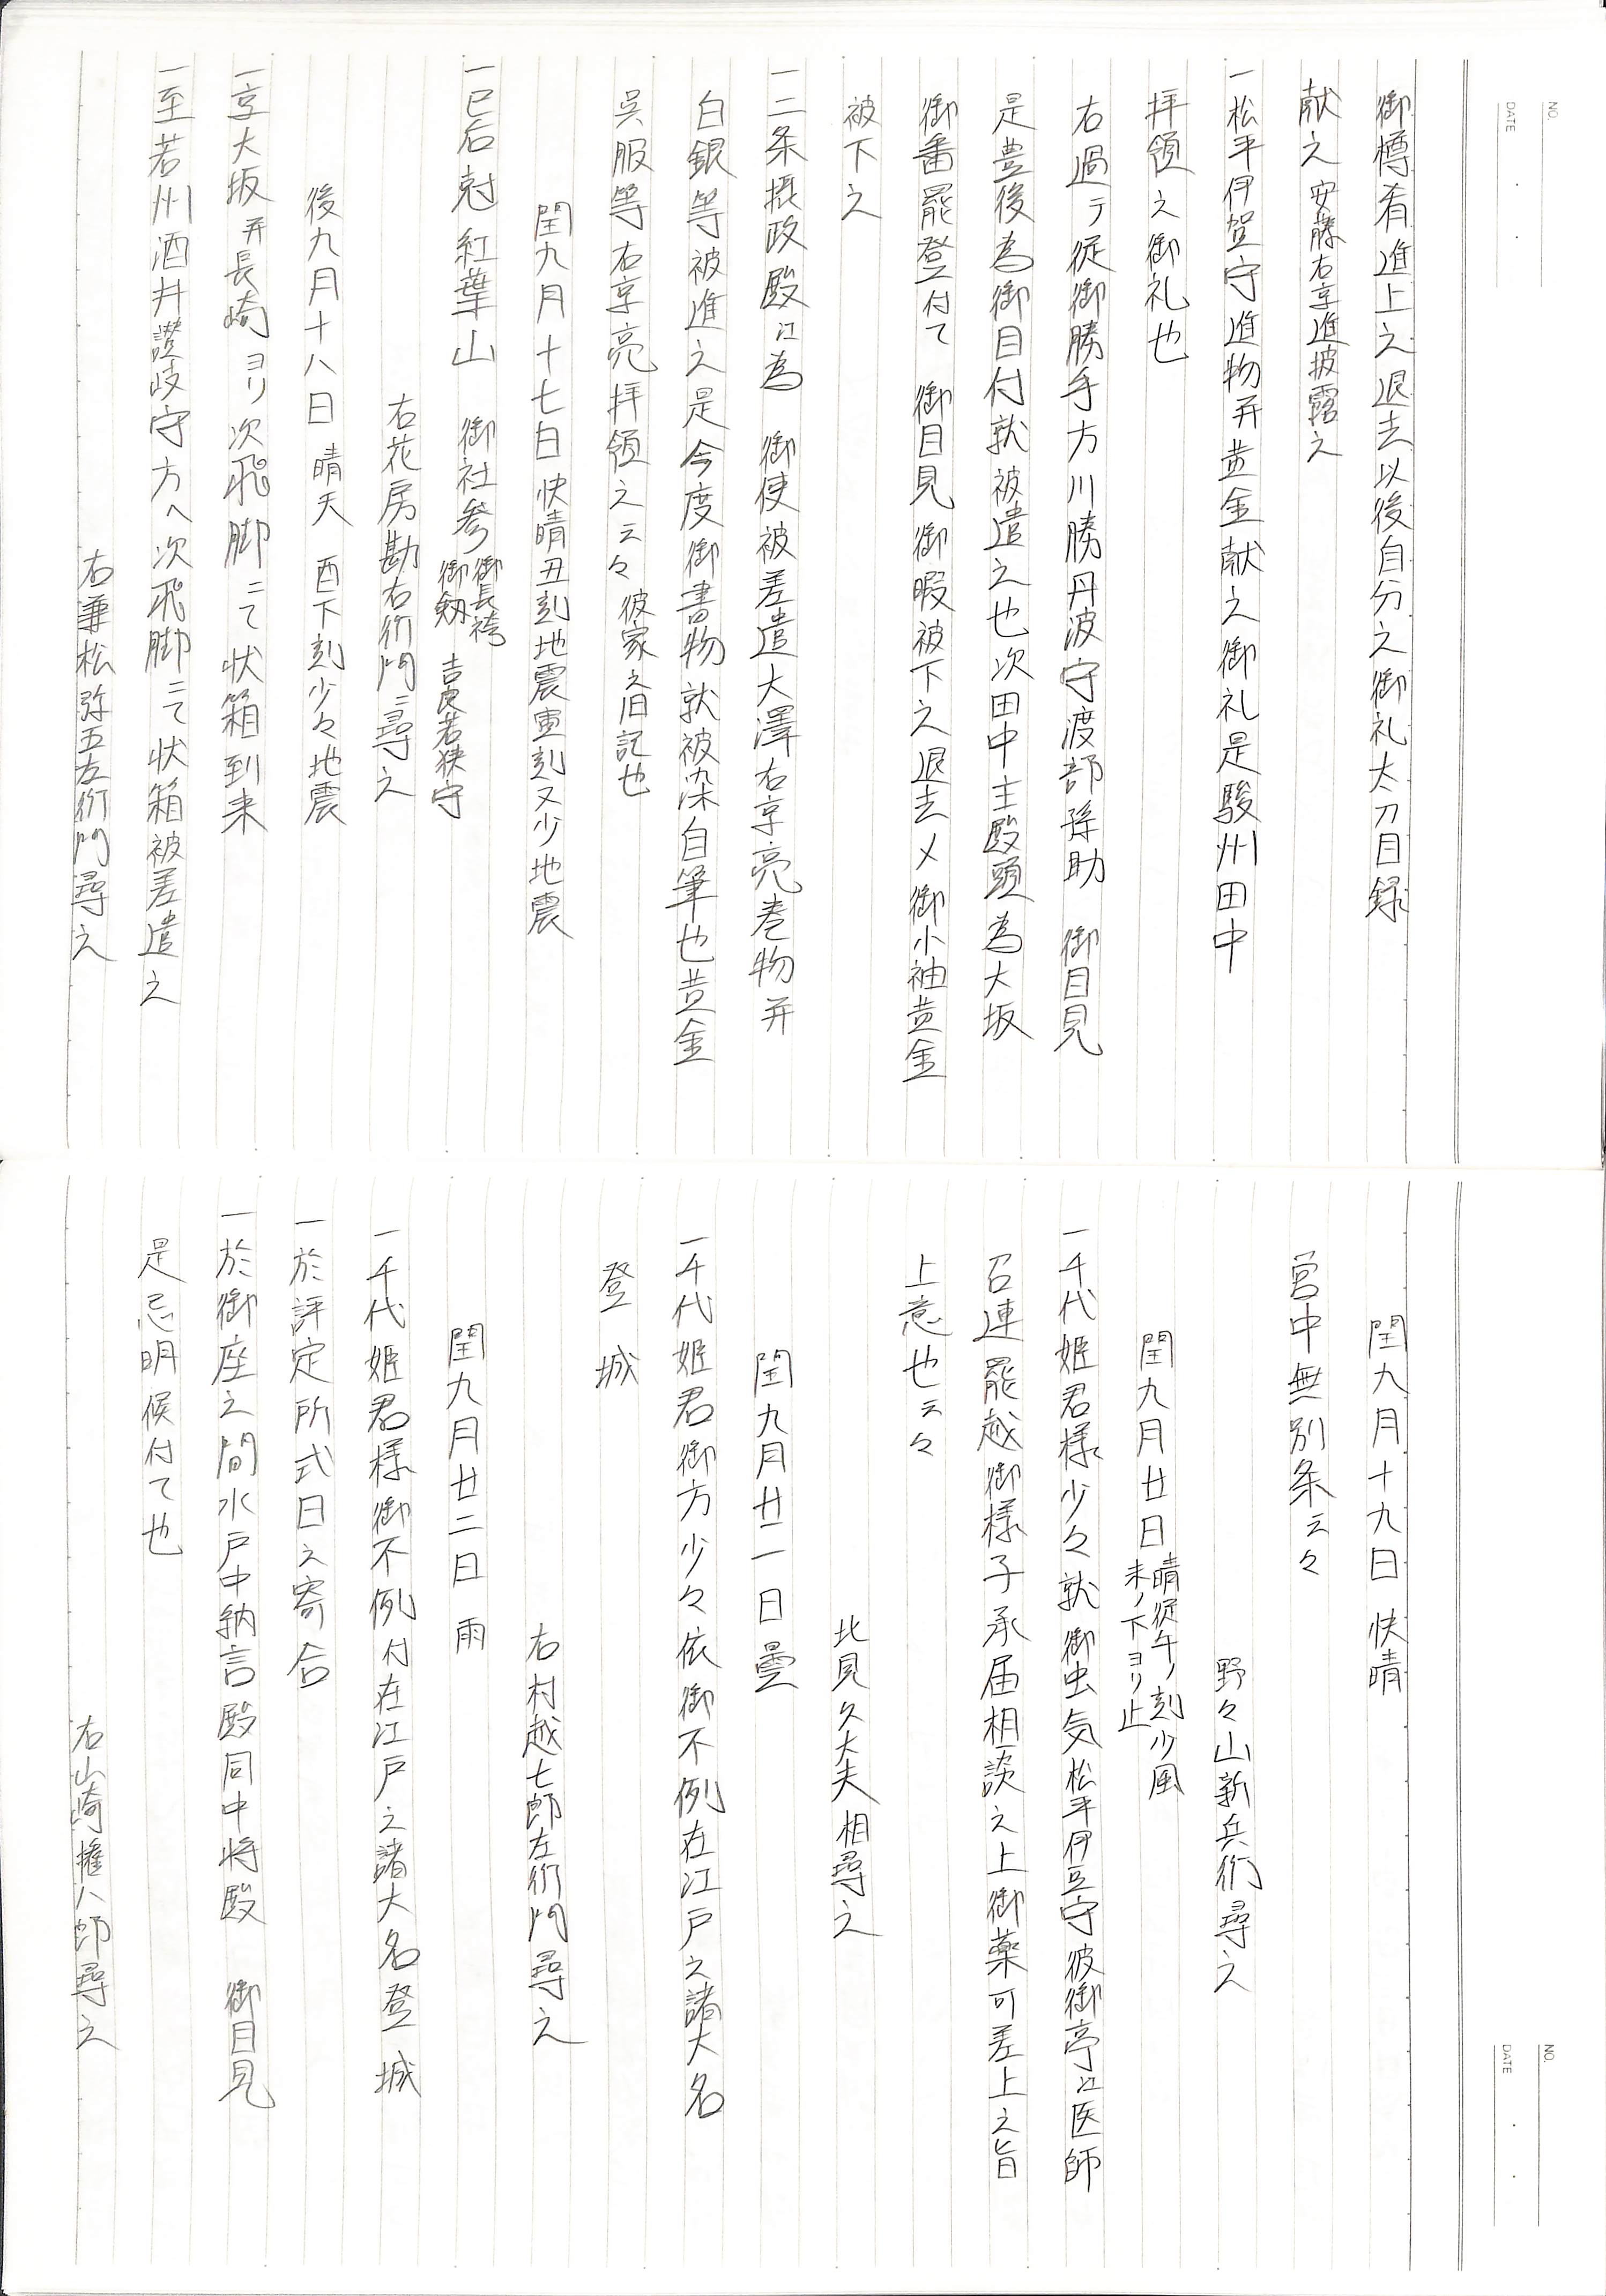 NO.
DATE
御樽肴進上之退去以後自分之御礼太刀目録
献之 安藤右京進披露之
一松平伊賀守進物并黄金献之御礼是駿州田中
拝領之御礼也
右過テ従御勝手方川勝丹波守渡部孫助 御目見
是豊後為御目付就被遣之也次田中主殿頭為大坂
御番罷登付て 御目見御暇被下之退去〆御小袖黄金
被下之
一二条摂政殿江為 御使被差遣大澤右京亮巻物并
白銀等被進之是今度御書物就被染自筆也黄金
呉服等右京亮拝領之云々 彼家之旧記也
閏九月十七日 快晴丑刻地震寅刻又少地震
一巳后尅紅葉山 御社参 御長袴 御剱 吉良若狭守
右花房勘右衛門ニ尋之
後九月十八日 晴天 酉下刻少々地震
一京大坂并長崎ヨリ次飛脚ニて状箱到来
一至若州酒井讃岐守方へ次飛脚ニて状箱被差遣之
右兼松弥五左衛門尋之
NO.
DATE
閏九月十九日 快晴
宮中無別条云々
野々山新兵衛尋之
閏九月廿日 晴従午ノ刻少風 未ノ下ヨリ止
一千代姫君様少々就御虫気松平伊豆守彼御亭江医師
召連罷越御様子承届相談之上御薬可差上之旨
上意也云々
北見久大夫相尋之
閏九月廿一日 曇
一千代姫君御方少々依御不例在江戸之諸大名
登 城
右村越七郎左衛門尋之
閏九月廿二日 雨
一千代姫君様御不例付在江戸之諸大名登 城
一於評定所式日之寄合
一於御座之間水戸中納言殿同中将殿 御目見
是忌明候付て也
右山崎権八郎尋之